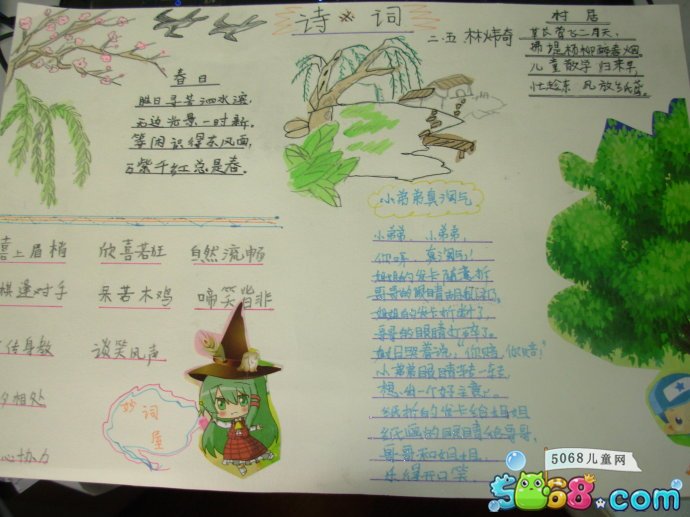 诗 词
二.五 林炜奇
春日
胜日寻芳泗水滨,
无边光景一时新。
等闲识得东风面,
万紫千红总是春。
村居
草长莺飞二月天,
拂堤杨柳醉春烟。
儿童散学归来早,
喜上眉梢 欣喜若狂 自然流畅
棋逢对手 呆若木鸡 啼笑皆非
传身教 谈笑风声
夕相处
心协力
妙词屋
小弟弟真淘气
小弟弟、小弟弟,
你呀,真淘气!
姐姐的发卡随意折
姐姐的发卡折断了,
哥哥的眼睛打碎了。
"你赔,你赔!"
小弟弟眼睛转一转,
想出一个好主意。
纸折的发卡给姐姐
哥哥和姐姐,
乐得开口笑。
5068儿童网
5068.com